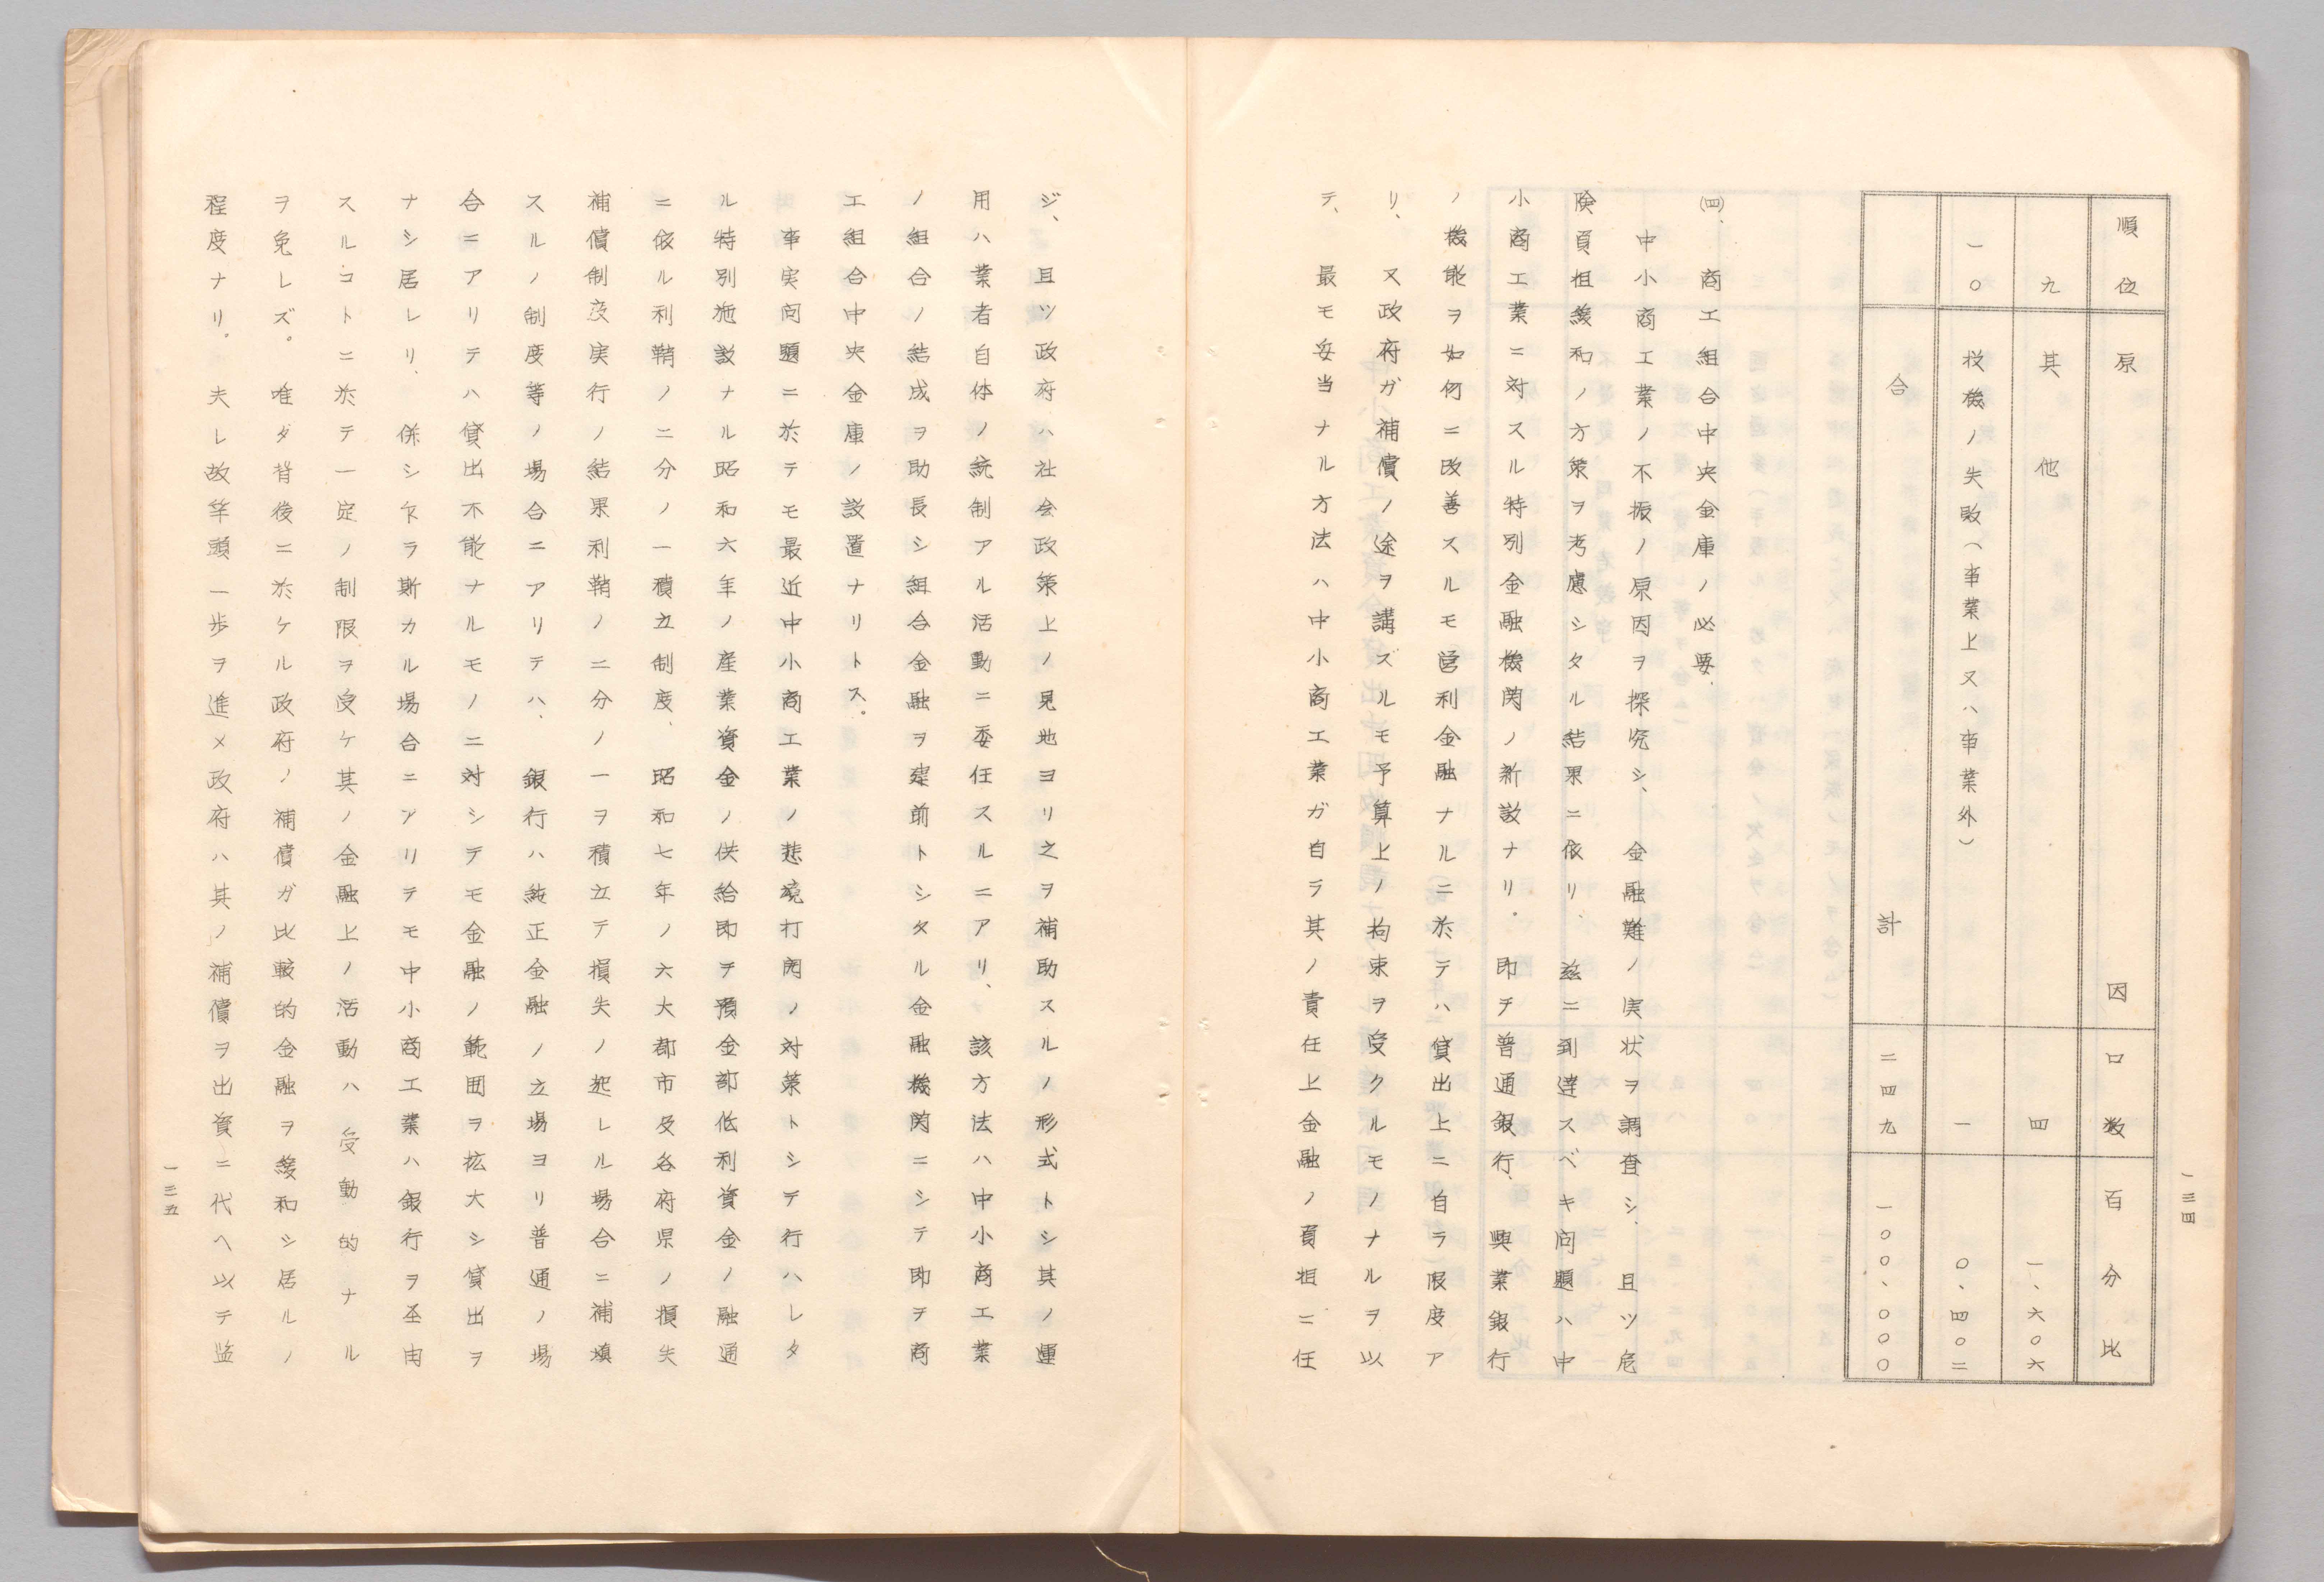 一三四
順位 原因 口数 百分比
九 其他 四 一、六〇六
一〇 投機ノ失敗(事業上又ハ事業外) 一 〇、四〇二
合計 二四九 一〇〇、〇〇〇
㈣、商工組合中央金庫ノ必要、
中小商工業ノ不振ノ原因ヲ探究シ、金融難ノ実状ヲ調査シ、且ツ危
険負担緩和ノ方策ヲ考慮シタル結果ニ依リ、茲ニ到達スベキ問題ハ中
小商工業ニ対スル特別金融機関ノ新設ナリ。即チ普通銀行、興業銀行
ノ機能ヲ如何ニ改善スルモ営利金融ナルニ於テハ貸出上ニ自ラ限度ア
リ、又政府ガ補償ノ途ヲ講ズルモ予算上ノ拘束ヲ受クルモノナルヲ以
テ、最モ妥当ナル方法ハ中小商工業ガ自ラ其ノ責任上金融ノ負担ニ任
ジ、且ツ政府ハ社会政策上ノ見地ヨリ之ヲ補助スルノ形式トシ其ノ運
用ハ業者自体ノ統制アル活動ニ委任スルニアリ、該方法ハ中小商工業
ノ組合ノ結成ヲ助長シ組合金融ヲ建前トシタル金融機関ニシテ即チ商
工組合中央金庫ノ設置ナリトス。
事実問題ニ於テモ最近中小商工業ノ悲境打開ノ対策トシテ行ハレタ
ル特別施設ナル昭和六年ノ産業資金ノ供給即チ預金部低利資金ノ融通
ニ依ル利鞘ノ二分ノ一積立制度、昭和七年ノ六大都市及各府県ノ損失
補償制度実行ノ結果利鞘ノ二分ノ一ヲ積立テ損失ノ起レル場合ニ補塡
スルノ制度等ノ場合ニアリテハ、銀行ハ純正金融ノ立場ヨリ普通ノ場
合ニアリテハ貸出不能ナルモノニ対シテモ金融ノ範囲ヲ拡大シ貸出ヲ
ナシ居レリ、併シ乍ラ斯カル場合ニアリテモ中小商工業ハ銀行ヲ経由
スルコトニ於テ一定ノ制限ヲ受ケ其ノ金融上ノ活動ハ受動的ナル
ヲ免レズ。唯ダ背後ニ於ケル政府ノ補償ガ比較的金融ヲ緩和シ居ルノ
程度ナリ。夫レ故竿頭一歩ヲ進メ政府ハ其ノ補償ヲ出資ニ代ヘ以テ監
一三五